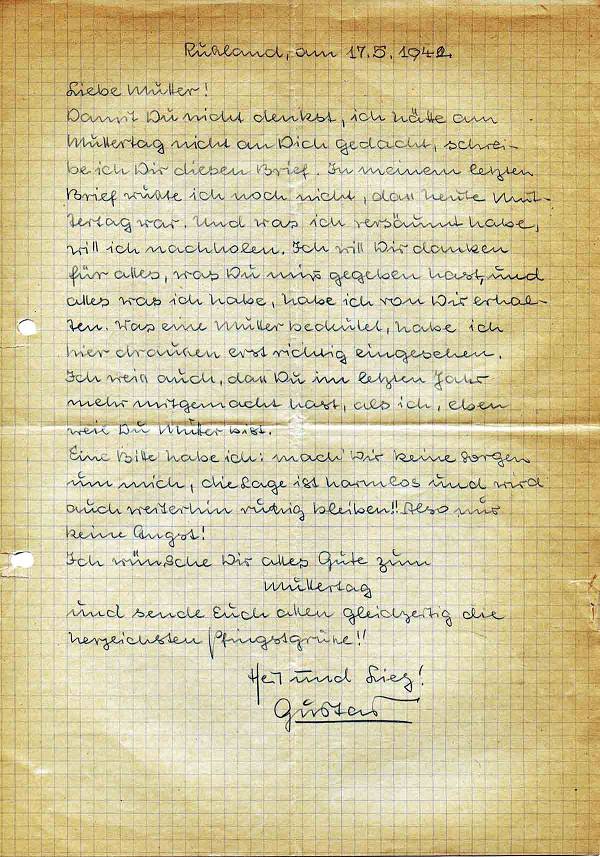 Rußland, am 17.5.1942.
Liebe Mutter!
Damit Du nicht denkst, ich hätte am
Muttertag nicht an Dich gedacht, schrei-
be ich Dir diesen Brief. In meinem letzten
Brief wußte ich noch nicht, daß heute Mut-
tertag war. Und was ich versäumt habe,
will ich nachholen. Ich will Dir danken
für alles, was Du mir gegeben hast, und
alles was ich habe, habe ich von Dir erhal-
ten. Was eine Mutter bedeutet, habe ich
hier draußen erst richtig eingesehen.
Ich weiß auch, daß Du im letzten Jahr
mehr mitgemacht hast, als ich, eben
weil Du Mutter bist.
Eine Bitte habe ich: mach' Dir keine Sorgen
um mich, die Lage ist harmlos und wird
auch weiterhin ruhig bleiben!! Also nur
keine Angst!
Ich wünsche Dir alles Gute zum
Muttertag
und sende Euch allen gleichzeitig die
herzlichsten Pfingstgrüße!!
Heil und Sieg!
Gustav